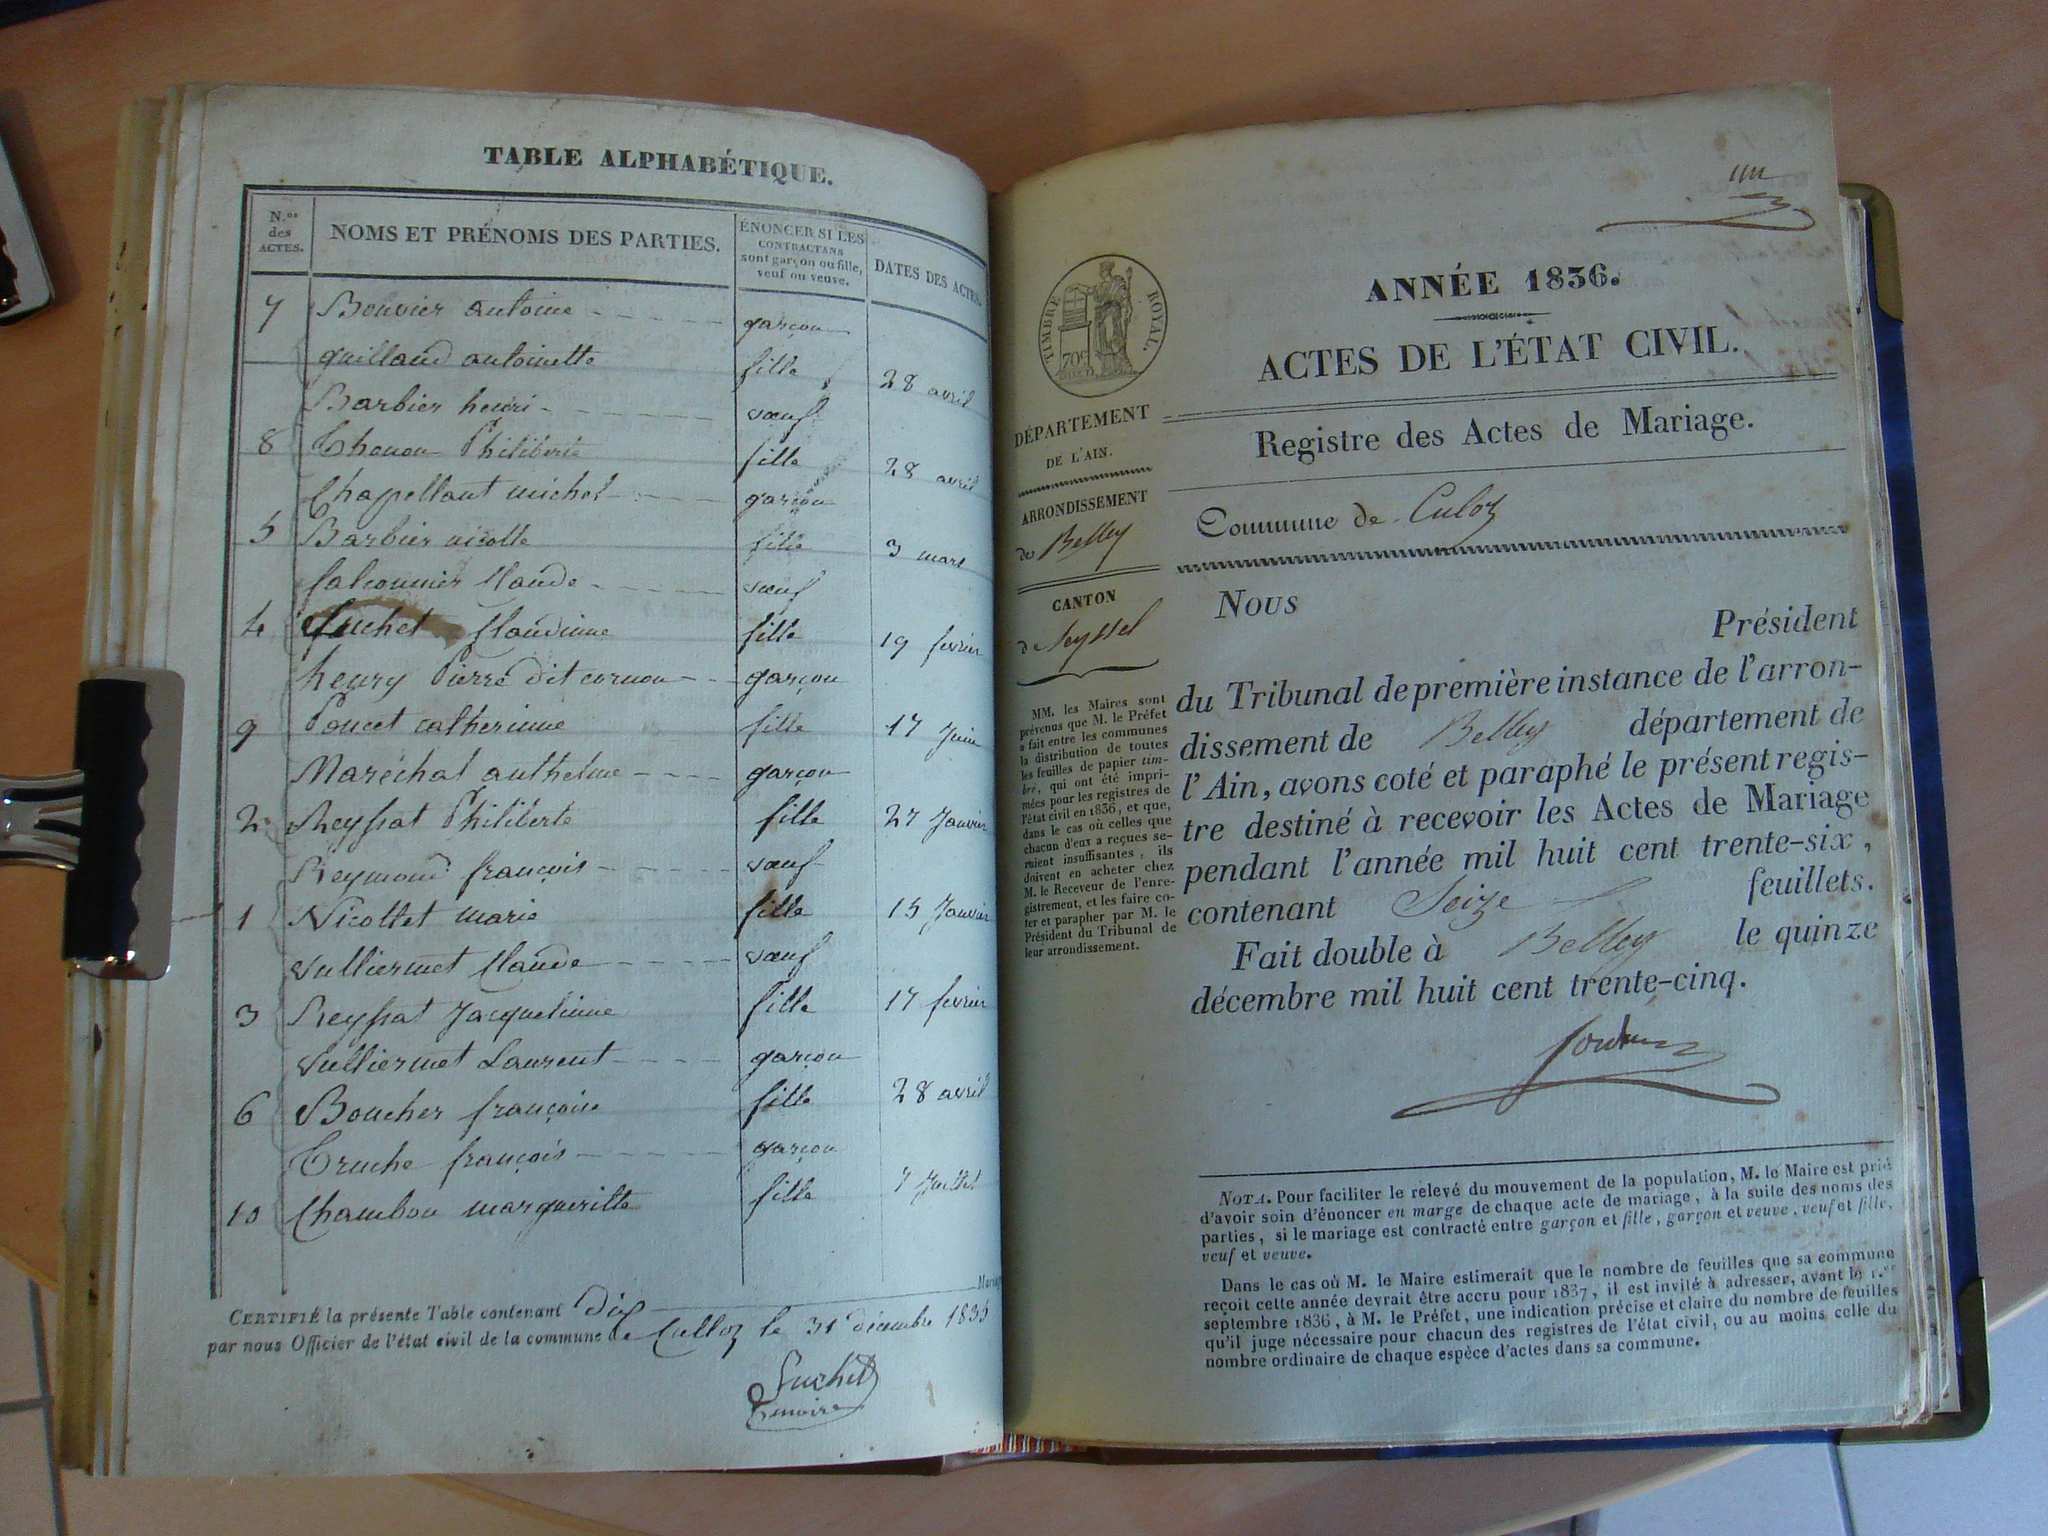 TABLE ALPHABÉTIQUE.
N.os des ACTES.
NOMS ET PRÉNOMS DES PARTIES.
ÉNONCER SI LES
CONTRACTANS
sont garçon ou fille,
veuf ou veuve.
DATES DES ACTES.
7 Bouvier antoine garçon
guillaud antoinette fille 28 avril
Barbier henri veuf
8 Thonon Philiberte fille 28 avril
Chapellant michel garçon
5 Barbier nicolle fille 3 mars
falconnier Claude veuf
4 Suchet Claudinne fille 19 fevrier
henry Pierre dit cornon garçon
9 Poncet catherinne fille 17 Juin
Maréchal anthelme garçon
2 Reyssat Philiberte fille 27 Janvier
Reymond françois veuf
1 Nicollet marie fille 15 Janvier
Vulliermet Claude veuf
3 Reyssat Jacquelinne fille 17 fevrier
Vulliermet Laurent garçon
6 Boucher françoise fille 28 avril
Truche françois garçon
10 Chambon margueritte fille 7 Juillet
CERTIFIÉ la présente Table contenant dix
par nous Officier de l'état civil de la commune de Culloz le 31 décembre 1835
Suchet
ANNÉE 1836.
ACTES DE L'ÉTAT CIVIL.
TIMBRE ROYAL.
70c
DÉPARTEMENT
DE L'AIN.
ARRONDISSEMENT
de Belley
CANTON
de Seyssel
MM. les Maires sont
prévenus que M. le Préfet
a fait entre les communes
la distribution de toutes
les feuilles de papier tim-
bré, qui ont été impri-
mées pour les registres de
l'état civil en 1836, et que,
dans le cas où celles que
chacun d'eux a reçues se-
raient insuffisantes, ils
doivent en acheter chez
M. le Receveur de l'enre-
gistrement, et les faire co-
ter et parapher par M. le
Président du Tribunal de
leur arrondissement.
Registre des Actes de Mariage.
Commune de Culoz
Nous
Président
du Tribunal de première instance de l'arron-
dissement de Belley département de
l'Ain, avons coté et paraphé le présent regis-
tre destiné à recevoir les Actes de Mariage
pendant l'année mil huit cent trente-six,
contenant Seize feuillets.
Fait double à Belley le quinze
décembre mil huit cent trente-cinq.
NOTA. Pour faciliter le relevé du mouvement de la population, M. le Maire est prié
d'avoir soin d'énoncer en marge de chaque acte de mariage, à la suite des noms des
parties, si le mariage est contracté entre garçon et fille, garçon et veuve, veuf et fille,
veuf et veuve.
Dans le cas où M. le Maire estimerait que le nombre de feuilles que sa commune
reçoit cette année devrait être accru pour 1837, il est invité à adresser, avant le 1.er
septembre 1836, à M. le Préfet, une indication précise et claire du nombre de feuilles
qu'il juge nécessaire pour chacun des registres de l'état civil, ou au moins celle du
nombre ordinaire de chaque espèce d'actes dans sa commune.